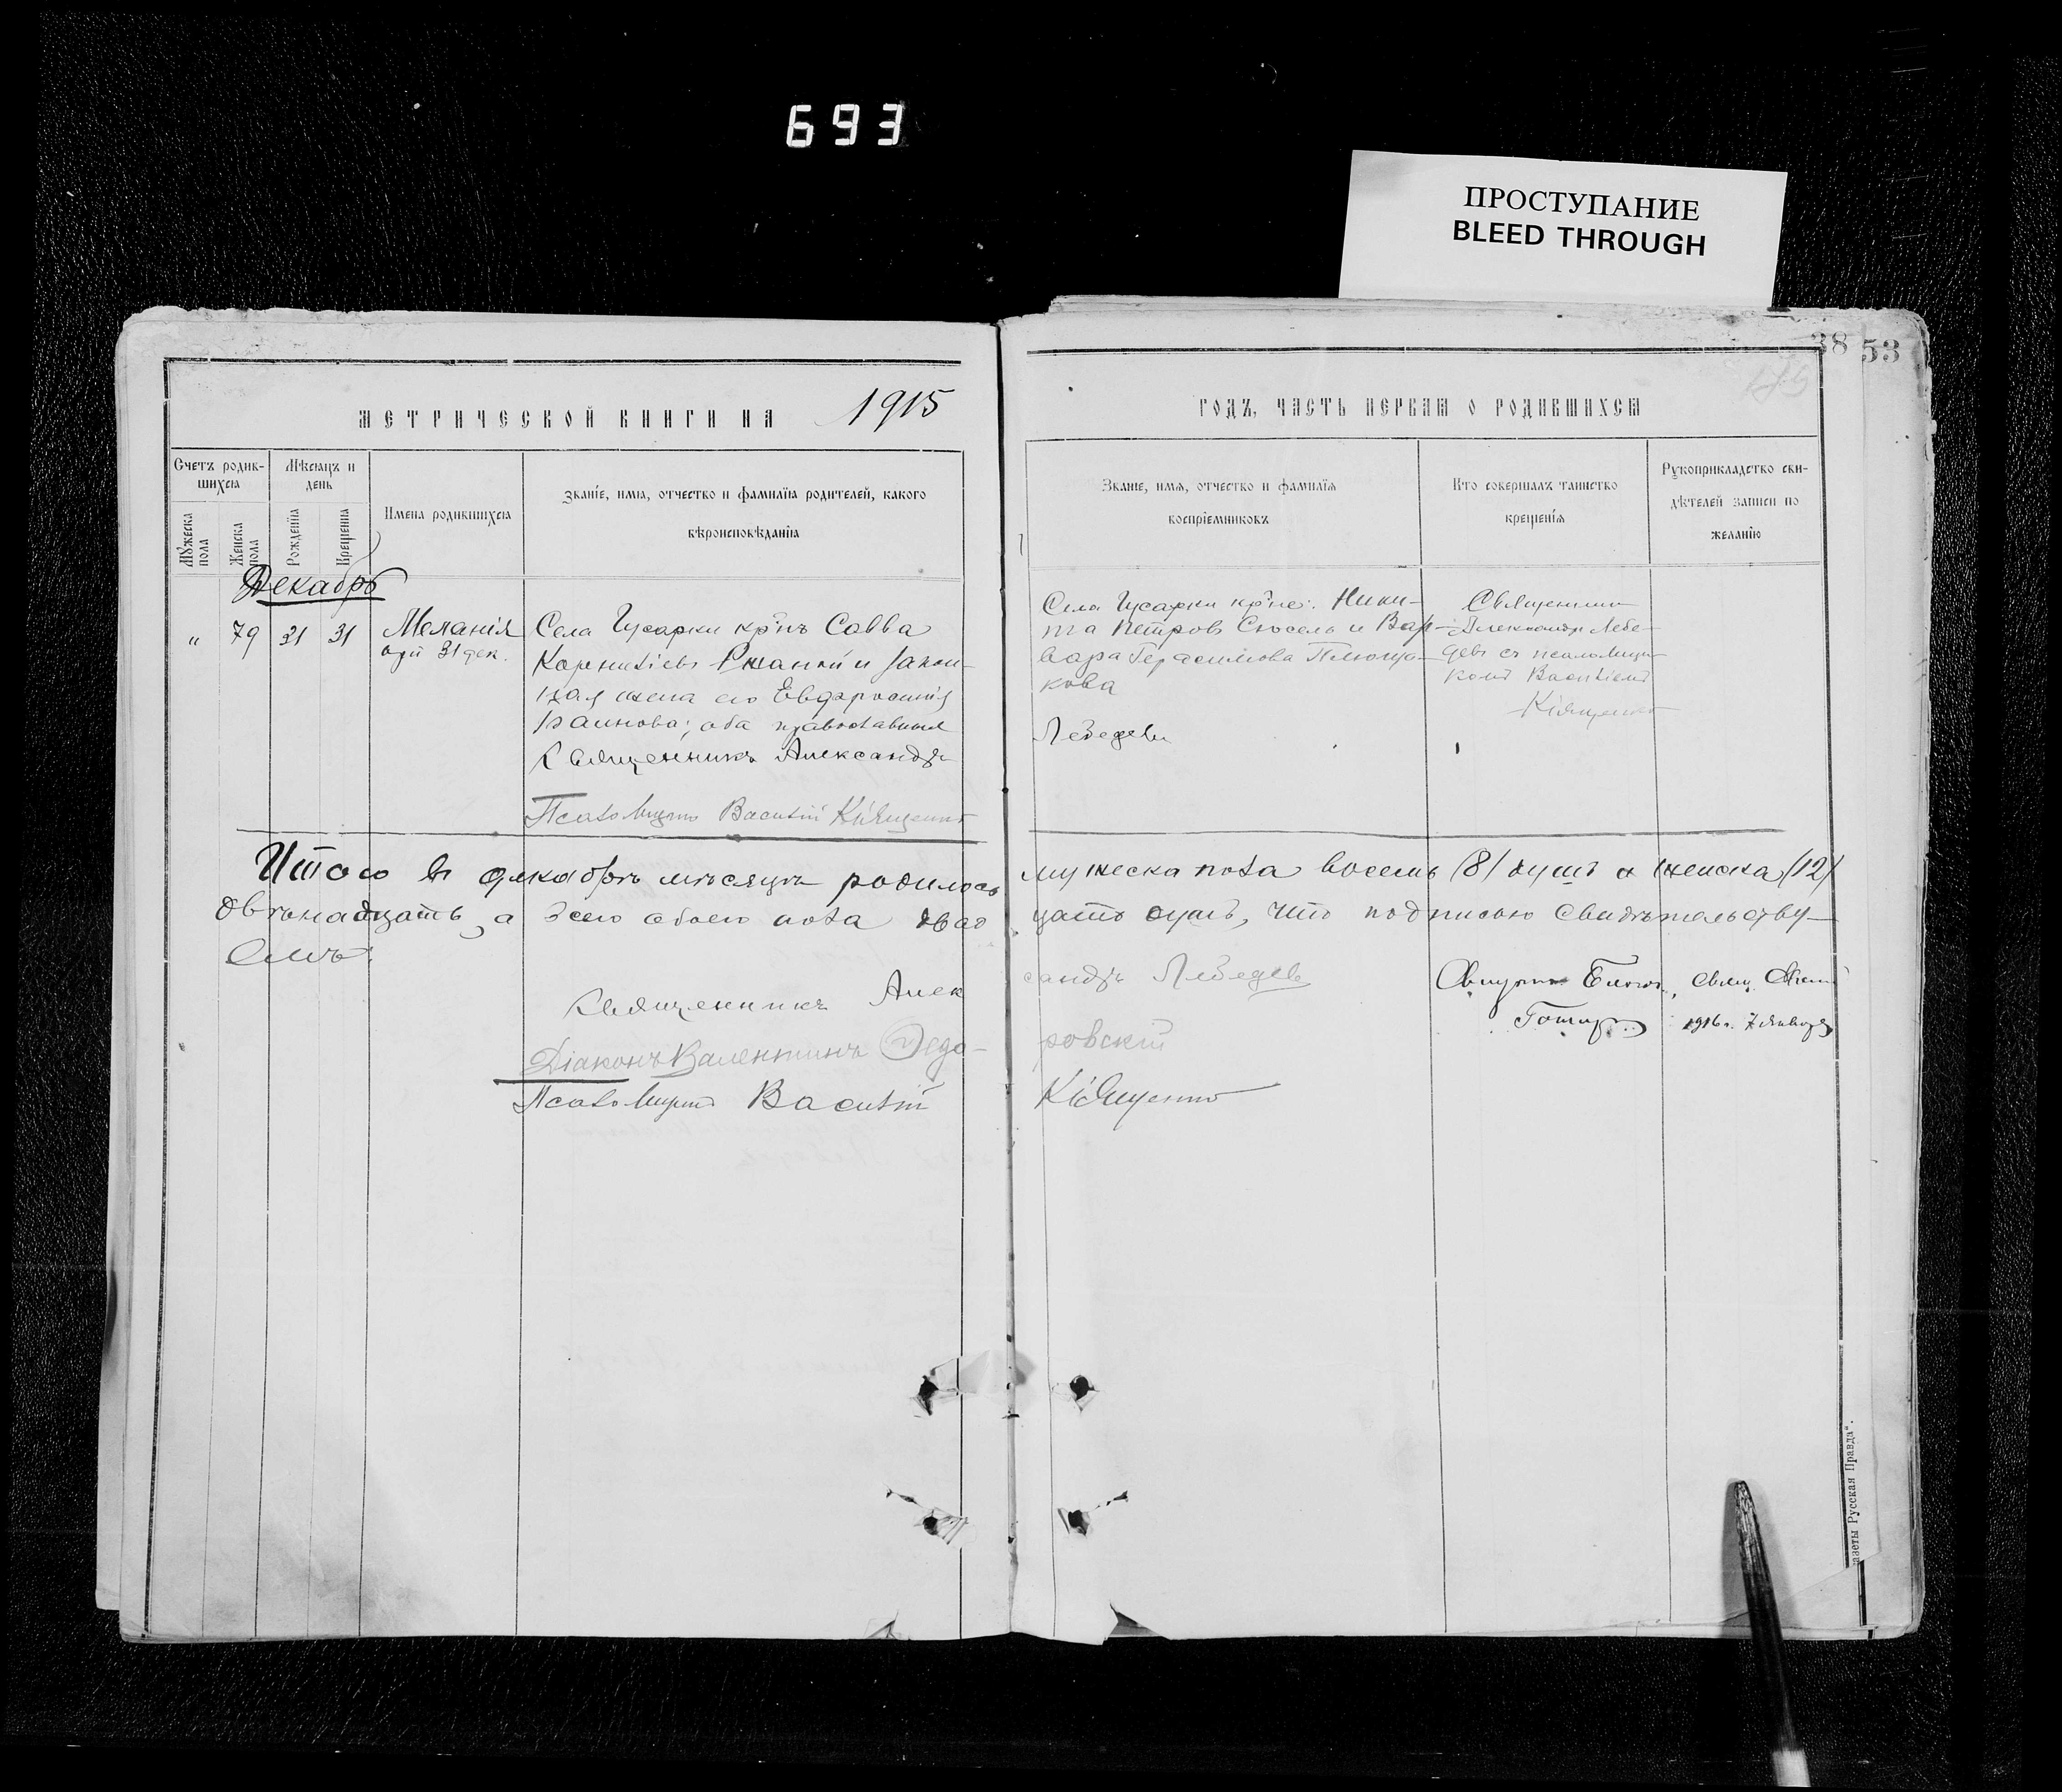 693
ПРОСТУПАНИЕ
BLEED THROUGH
38 53
МЕТРИЧЕСКОЙ КНИГИ НА 1915
ГОДЪ, ЧАСТЬ ПЕРВАЯ О РОДИВШИХСЯ
Счетъ родив-
шихся
Мужеска пола
Женска пола
Мѣсяцъ и
день
Рожденія
Крещенія
Имена родившихся
Званіе, имя, отчество и фамилія родителей, какого
вѣроисповѣданія
Званіе, имя, отчество и фамилія
воспріемниковъ
Кто совершалъ таинство
крещенія
Рукоприкладство сви-
дѣтелей записи по
желанію
Декабрь
" 79 31 31
Меланія
31 дек.
Села Гусарки кр-нъ Савва
Корниліевъ и закон-
ная жена его Евфросинія
оба православныя
Священникъ Александръ
Псаломщикъ Василій Кіященко
Села Гусарки кр-не: Ники-
та Петровъ и Вар-
вара Герасимова
кова
Лебедевъ
Священникъ
Александръ Лебе-
девъ съ псаломщи-
комъ Василіемъ
Кіященко
Итого въ декабрѣ мѣсяцѣ родилось мужеска пола восемь (8) душъ а женска (12)
двѣнадцать, а всего обоего пола двад цать душъ, что подписью свидѣтельству-
емъ.
Священникъ Алек сандръ Лебедевъ
Діаконъ Валентинъ Ѳедо- ровскій
Псаломщикъ Василій Кіященко
1916 г. 7 января
азеты Русская Правда".